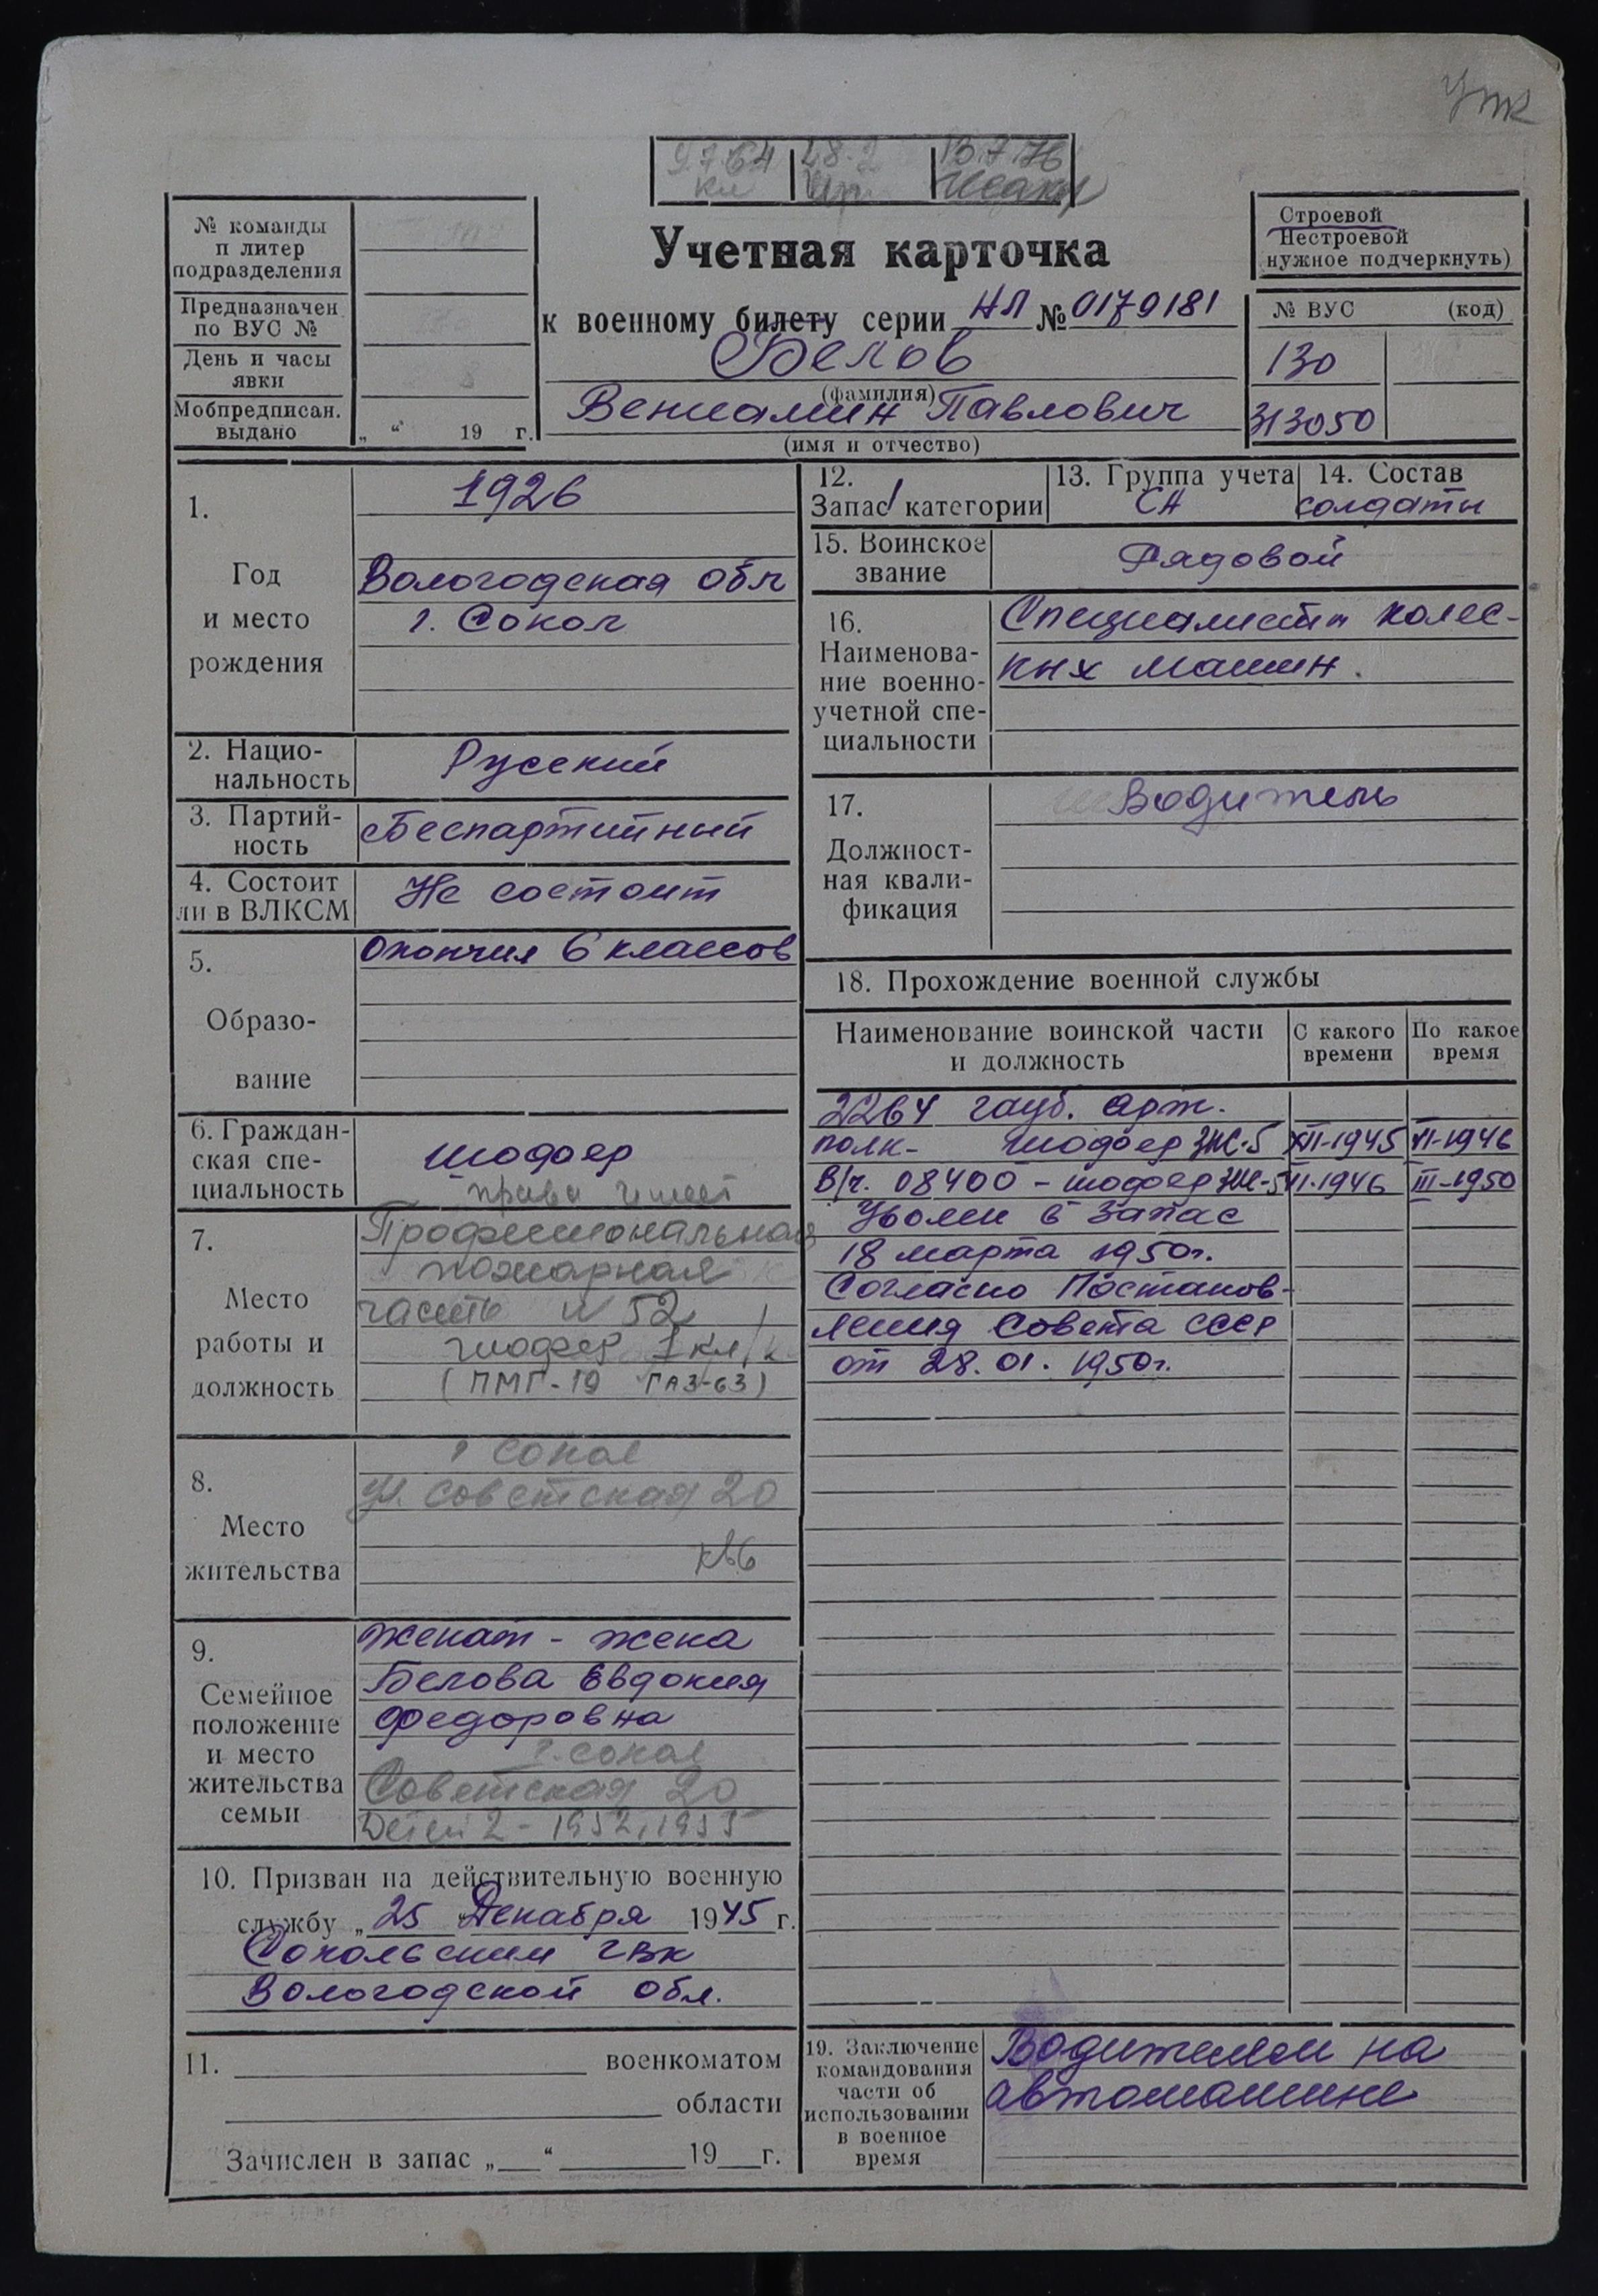 УПК
9.7.64
кл
28.2
13.7.76
№ команды
п литер
подразделения
Предназначен
по ВУС №
День и часы
явки
Мобпредписан.
выдано
„ “ 19 г.
Учетная карточка
к военному билету серии НЛ № 0179181
Белов
(фамилия)
Вениамин Павлович
(имя и отчество)
Строевой
Нестроевой
нужное подчеркнуть)
№ ВУС (код)
130
313050
1.
Год
и место
рождения
1926
Вологодская обл
г. Сокол
2. Нацио-
нальность
Русский
3. Партий-
ность
Беспартийный
4. Состоит
ли в ВЛКСМ
Не состоит
5.
Образо-
вание
Окончил 6 классов
6. Граждан-
ская спе-
циальность
шофер
права имеет
7.
Место
работы и
должность
Профессиональная
пожарная
часть № 52
шофер 1 кл
(ПМГ-19 ГАЗ-63)
8.
Место
жительства
г Сокол
ул. Советская 20
кв 6
9.
Семейное
положение
и место
жительства
семьи
Женат - жена
Белова Евдокия
Федоровна
г. Сокол
Советская 20
Детей 2 - 1952, 1955
10. Призван на действительную военную
службу „25 “ Декабря 1945 г.
Сокольским ГВК
Вологодской обл.
11. военкоматом
области
Зачислен в запас „ “ 19 г.
12.
Запас 1 категории
13. Группа учета
СА
14. Состав
солдаты
15. Воинское
звание
Рядовой
16.
Наименова-
ние военно-
учетной спе-
циальности
Специалисты колес-
ных машин.
17.
Должност-
ная квали-
фикация
Водитель
18. Прохождение военной службы
Наименование воинской части
и должность
С какого
времени
По какое
время
2264 гауб. арт.
полк - шофер ЗИС-5 XII-1945 VI-1946
В/ч. 08400 - шофер ЗИС-5 VI-1946 III-1950
Уволен в запас
18 марта 1950г.
Согласно Постанов-
ления Совета СССР
от 28.01.1950г.
19. Заключение
командования
части об
использовании
в военное
время
Водителем на
автомашине